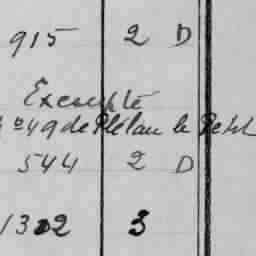 915 2 D
Exempté
nº 49 de Plélan le Petit
544 2 D
1302 3